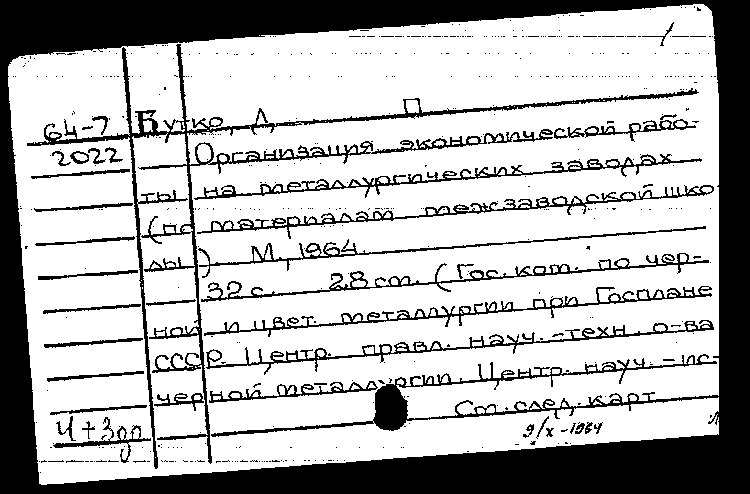 64-7 Бутко, Д. П
2022 Организация экономической рабо-
ты на металлургических заводах
(по материалам межзаводской шко
лы). М., 1964.
32 с. 28 см. (Гос. ком. по чер-
ной и цвет. металлургии при Госплане
СССР. Центр. правл. науч.-техн. о-ва
черной металлургии. Центр. науч.-ис-
См. след. карт
9/X-1964